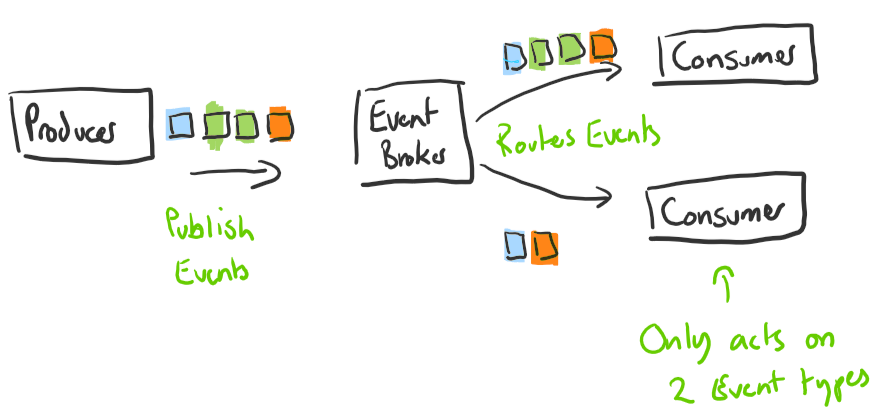 Producer
Publish
Events
Event
Broker
Routes Events
Consumer
Consumer
Only acts on
2 Event types